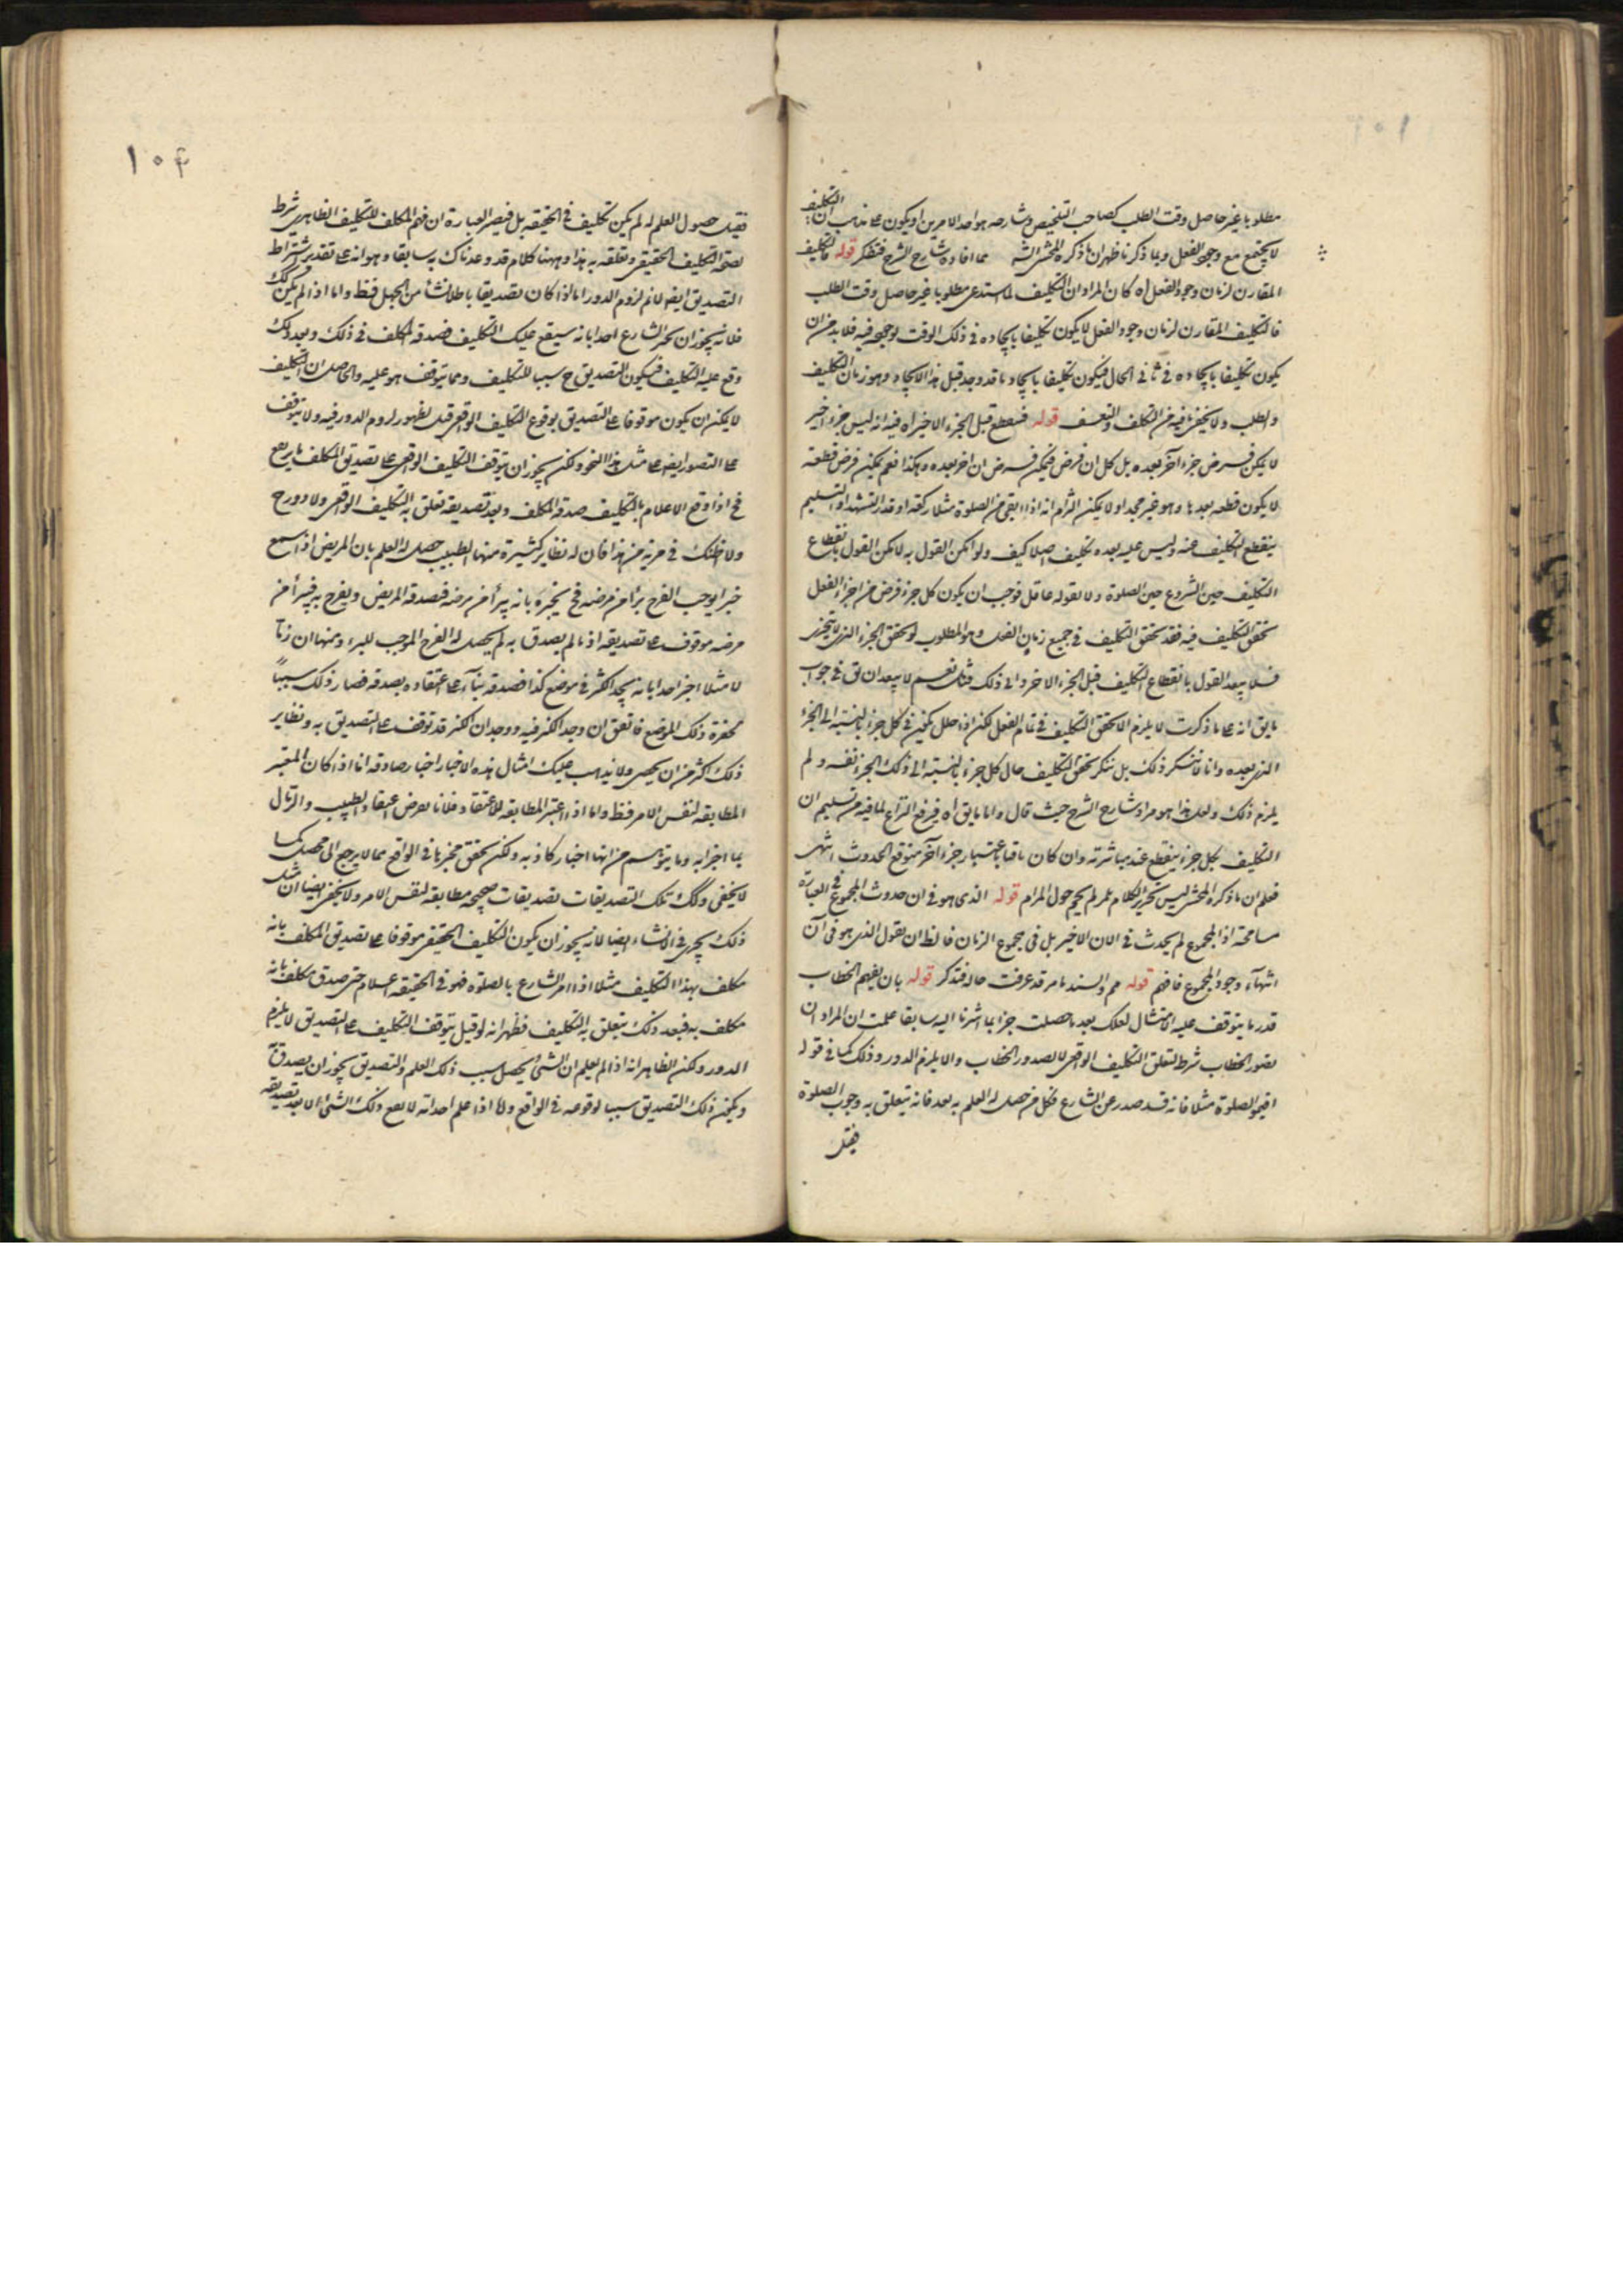 مطلوبا غير حاصل وقت الطلب كصاحب التلخيص وشارحه هو احد الامرين او يكون على مذهب ان التكليف
لا يجتمع مع وجود الفعل وبما ذكرنا ظهر ان ما ذكره المحشى مما افاده شارح الشرح فتفكر قوله فالتكليف
المقارن لزمان وجود الفعل اه كان المراد ان التكليف لما استدعى مطلوبا غير حاصل وقت الطلب
فالتكليف المقارن لزمان وجود الفعل لا يكون تكليفا بايجاده فى ذلك الوقت لوجوده فيه فلا بد من ان
يكون تكليفا بايجاده فى ثانى الحال فيكون تكليفا بايجاد ما قد وجد قبل هذا الايجاد وهو زمان التكليف
والطلب ولا يخفى ما فيه من التكلف والتعسف قوله فينقطع قبل الجزء الاخير اه فيه انه ليس جزء اخير
لا يمكن فرض جزء آخر بعده بل كل ان فرض فيمكن فرض ان اخر بعده وهكذا نعم يمكن فرض قطعة
لا يكون قطعة بعدها وهو غير مجد اولا يمكن التزام انه اذا بقى من الصلوة مثلا ركعة او قدر التشهد او التسليم
ينقطع التكليف عنه وليس عليه بعده تكليف اصلا كيف ولو امكن القول به لامكن القول بانقطاع
التكليف حين الشروع حين الصلوة ولا يقوله عاقل فوجب ان يكون كل جزء فرض من اجزاء الفعل
تحقق التكليف فيه فقد تحقق التكليف فى جميع زمان الفعل وهو المطلوب لو تحقق الجزء الذى لا يتجزى
فلا يبعد القول بانقطاع التكليف قبل الجزء الاخر وانى ذلك فتأمل نعم لا يبعد ان يق فى جواب
ما يق انه على ما ذكرت لا يلزم الا تحقق التكليف فى تمام الفعل لكن اذا حلل يكون فى كل جزء بالنسبة الى الجزء
الذى بعده وانا لا ننكر ذلك بل ننكر تحقق التكليف حال كل جزء بالنسبة الى ذلك الجزء نفسه ولم
يلزم ذلك ولعل هذا هو مراد شارح الشرح حيث قال واما ما يق اه فيرفع النزاع لما فيه من تسليم ان
التكليف بكل جزء ينقطع عند مباشرته وان كان باقيا باعتبار جزء آخر متوقع الحدوث انتهى
فعلم ان ما ذكره المحشى ليس تحرير الكلام بل لم يحم حول المرام قوله الذى هو فى ان حدوث المجموع فى العبارة
مسامحة اذ المجموع لم يحدث فى الان الاخير بل فى مجموع الزمان فالظ ان يقول الذى هو فى آن
انتهاء وجود المجموع فافهم قوله مم والسند ما مر قد عرفت حاله فتذكر قوله بان يفهم الخطاب
قدر ما يتوقف عليه الامتثال لعلك بعد ما حصلت خبرا بما اشرنا اليه سابقا علمت ان المراد ان
تصور الخطاب شرط لتعلق التكليف الواقعى لا لصدور الخطاب والا يلزم الدور وذلك كما فى قوله
اقيموا الصلوة مثلا فانه قد صدر عن الشارع فكل من حصل له العلم به بعد فانه يتعلق به وجوب الصلوة
فقبل
١٠٤
فقبل حصول العلم له لم يكن تكليف فى الحقيقة بل فيصير العبارة ان فهم المكلف للتكليف الظاهرى شرط
لصحة التكليف الحقيقى وتعلقه به هذا وههنا كلام قد وعدناك به سابقا وهو انه على تقدير اشتراط
التصديق ايضا لا نم لزوم الدور اما لو كان تصديقا باطلا نشأ من الجهل فقط واما اذا لم يكن كك
فلانه يجوز ان يخبر الشارع احدا بانه سيقع عليك التكليف فصدقه المكلف فى ذلك وبعد ذلك
وقع عليه التكليف فيكون التصديق ح سببا للتكليف ومما يتوقف هو عليه والحاصل ان التكليف
لا يمكن ان يكون موقوفا على التصديق بوقوع التكليف الواقعى قبل لظهور لزوم الدور فيه ولا يتوقف
على التصور ايضا على مثل هذا النحو ولكن يجوز ان يتوقف التكليف الواقعى على تصديق المكلف بما يقع
فح اذا وقع الاعلام بالتكليف صدقه المكلف وبعد تصديقه تعلق به التكليف الواقعى ولا دور ح
ولا اظنك فى مرية من هذا فان له نظاير كثيرة منها الطبيب حصل له العلم بان المريض اذا سمع
خبرا يوجب الفرح برأ من مرضه فح يخبره بانه يبرأ من مرضه فيصدقه المريض ويفرح به فيبرأ من
مرضه موقوف على تصديقه اذ ما لم يصدق به لم يحصل له الفرح الموجب للبرء ومنها ان رمالا
لا مثلا اخبر احدا بانه يجد اكثر فى موضع كذا فصدقه بناء على اعتقاده بصدقه فصار ذلك سببا
لحفره ذلك الموضع فاتفق ان وجد الكنز فيه ووجدان الكنز قد توقف على التصديق به ونظاير
ذلك اكثر من ان يحصى ولا يذهب عليك امثال هذه الاخبار اخبار صادقة اما اذا كان المعتبر
المطابقة لنفس الامر فقط واما اذا اعتبر المطابقة للاعتقاد فلانا نفرض اعتقاد الطبيب والرمال
بما اخبرا به وما يتوهم من انها اخبار كاذبة ولكن تحقق مخبرها فى الواقع مما لا يرجع الى محصل كما
لا يخفى وكك تلك التصديقات تصديقات صحيحة مطابقة لنفس الامر ولا يخفى ايضا ان مثل
ذلك يجرى فى الانشاء ايضا لانه يجوز ان يكون التكليف الحقيقى موقوفا على تصديق المكلف بانه
مكلف بهذا التكليف مثلا اذا امر الشارع بالصلوة فهو فى الحقيقة اعلام حتى صدق مكلف بانه
مكلف به فبعد ذلك يتعلق به التكليف فظهر انه لو قيل يتوقف التكليف على التصديق لا يلزم
الدور ولكن الظاهر انه اذا لم يعلم ان الشئ يحصل بسبب ذلك العلم والتصديق يجوز ان يصدق
ويكون ذلك التصديق سببا لوقوعه فى الواقع واما اذا علم احد انه لا يقع ذلك الشئ الا بعد تصديقه